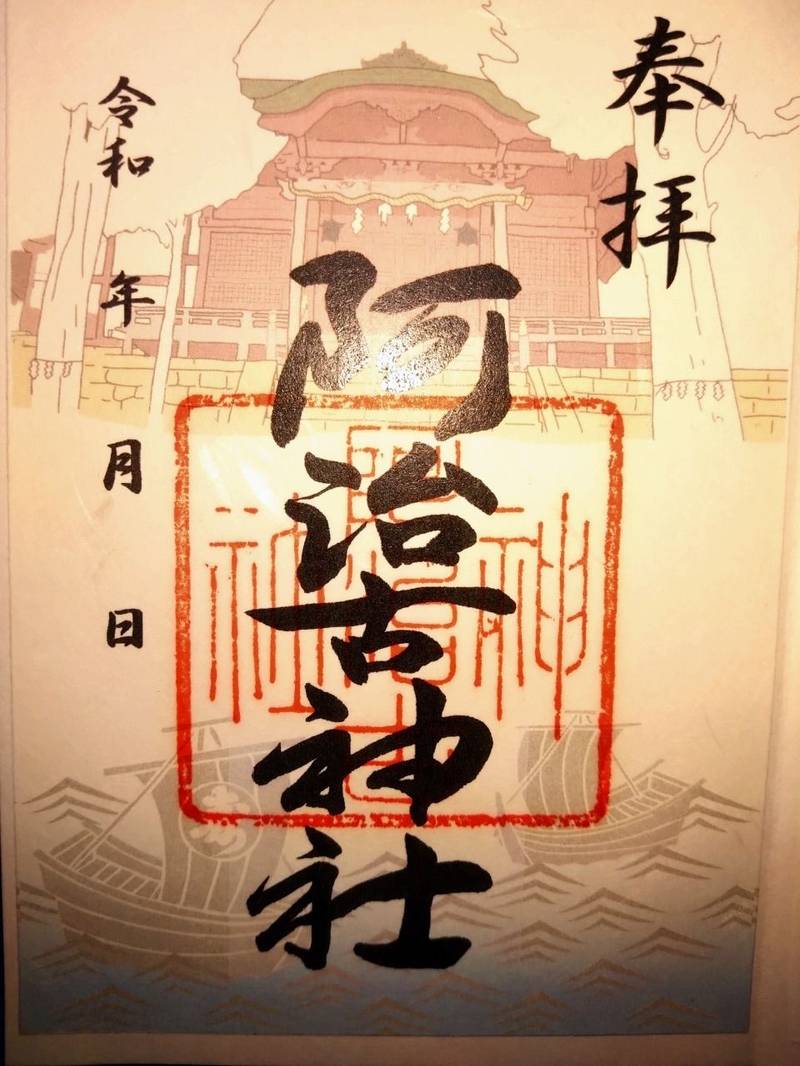 奉拝
阿治古神社
令和 年 月 日